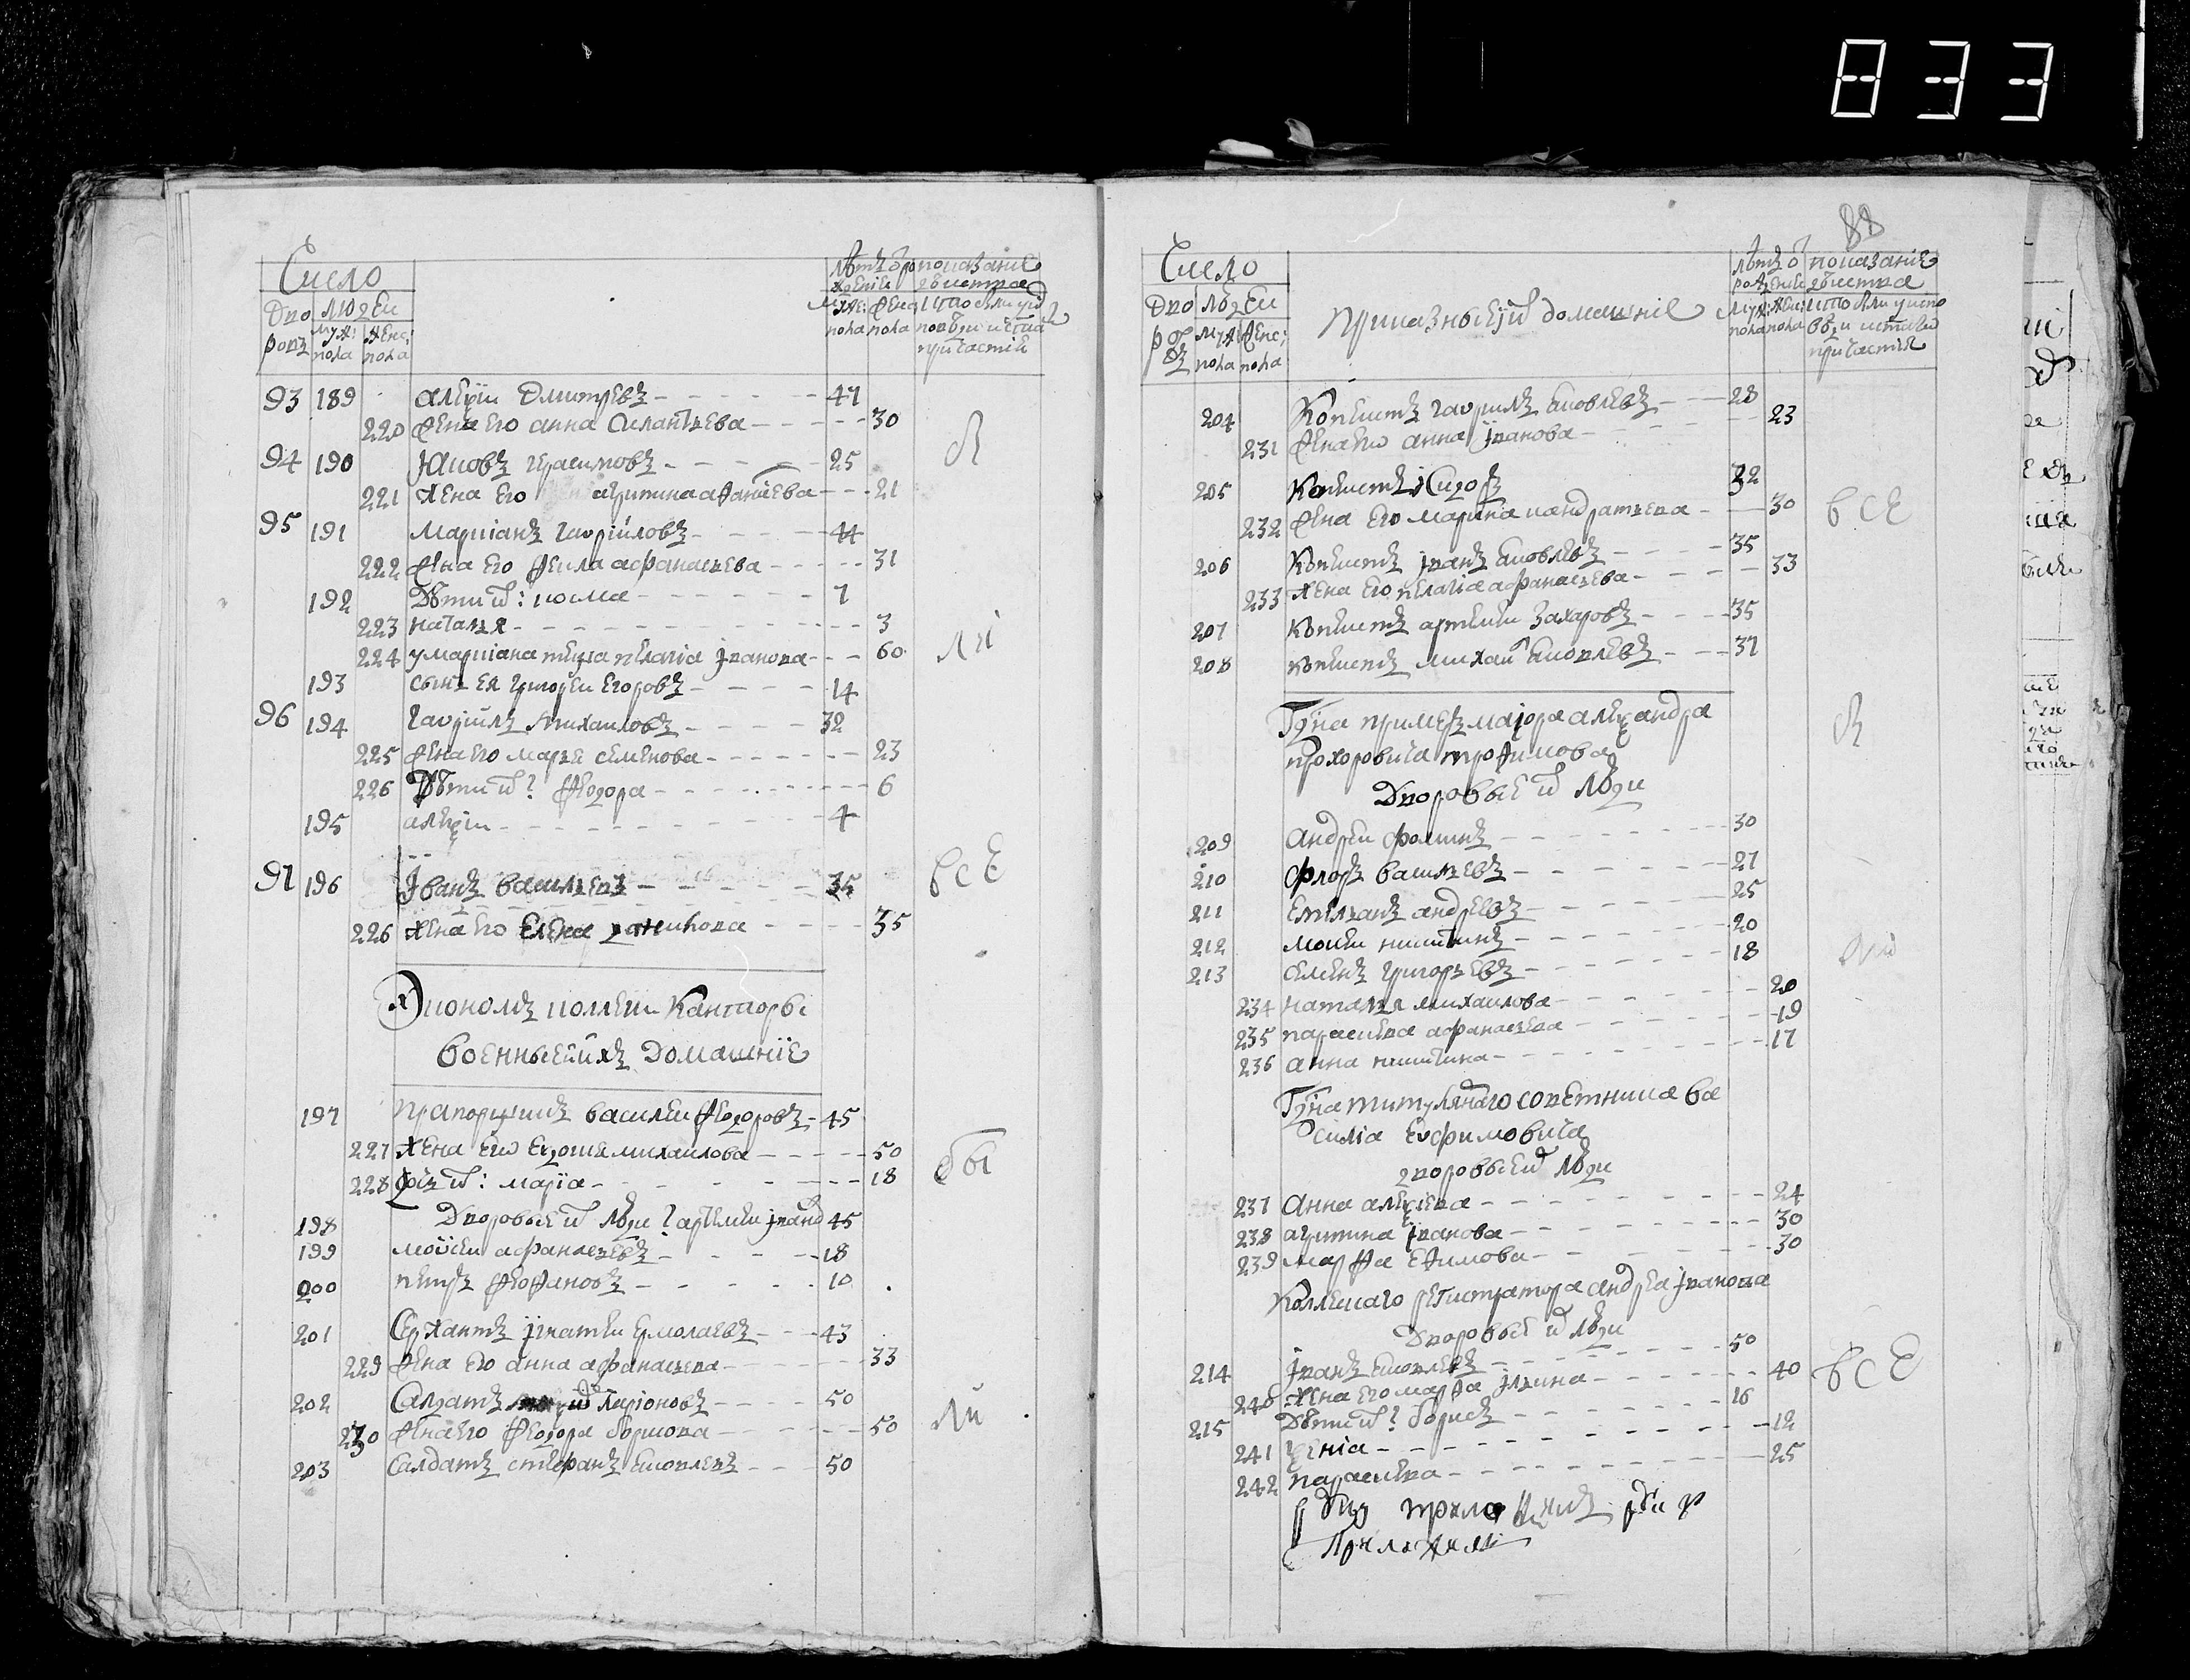 833
Число
Дворовъ
людеи
муж: пола
женс: пола
лѣтъ от рождениѣ
муж: пола
женс: пола
показание
93 189 алеѯѣи Дмитревъ 47
220 жена его анна Силантьева 30
94 190 Яковъ герасимовъ 25
221 жена его агрипина 21
95 191 маркианъ гаврииловъ 44
222 жена его феѵла афанасьева 31
192 Дѣти их: козма 7
223 наталья 3
224 у маркиана теща пелагиа Iванова 60
193 сынъ ея григореи егоровъ 14
96 194 гаврiилъ михаиловъ 32
225 жена его марья семенова 23
226 Дѣти их: Ѳеодора 6
195 алеѯѣи 4
97 196 Iванъ васильевъ 35
226 жена его елена 35
Економъ колеги Канторы
военные ихъ домашнiе
197 прапорщикъ василеи Ѳеодоровъ 45
227 жена его Евдокия михаилова 50
228 дочь их: мариа 18
198 Дворовые их люди: артемеи Iвановъ 45
199 моисеи афанасьевъ 18
200 петръ Ѳеофановъ 10
201 Сержантъ Iгнатеи ермолаевъ 43
229 жена его анна афанасьева 33
202 Салдатъ Ларионовъ 50
230 жена его Ѳеодора борисова 50
203 Салдатъ стефанъ яковлевъ 50
88
Число
Дворовъ
людеи
муж: пола
женс: пола
приказные их домашние
лѣтъ от рождениѣ
муж: пола
жен: пола
показание
204 Копеистъ гаврилъ яковлевъ 28
231 жена его анна Iванова 23
205 Копеистъ Сидоръ 32
232 жена его марина кандратьева 30
206 Копеистъ Iванъ яковлевъ 35
233 жена его пелагиа афанасьева 33
207 Копеистъ артемеи захаровъ 35
208 копеистъ михаил яковлевъ 37
все
Гдна примеръ маiора алеѯандра
прохоровича троѳимова
Дворовые их люди
209 андреи фоминъ 30
210 фролъ васильевъ 27
211 емельянъ андреевъ 25
212 мокеи никитинъ 20
213 семенъ григорьевъ 18
234 наталья михаилова 20
235 параскева афанасьева 19
236 анна никитина 17
Гдна титулярнаго советника ва
силiа Ефимовича
дворовые их люди
237 анна алеѯiева 24
238 агрипина Iванова 30
239 марѳа еѳимова 30
Коллежскаго регистратора андреа Iванова
Дворовые их люди
214 Iванъ яковлевъ 50
240 жена его марѳа Iльина 40
215 Дѣти их: борисъ 16
241 ѯенiа 12
242 параскева 25
все